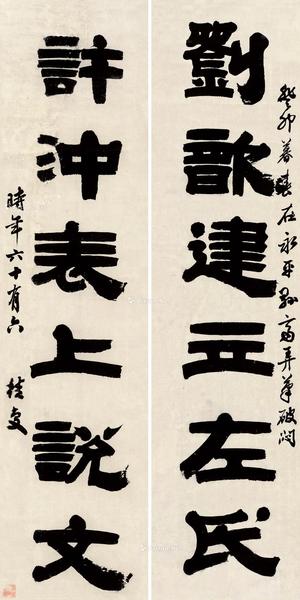 劉歆建立左氏
癸卯暮春在永平縣齋弄筆破悶
許沖表上說文
時年六十有六 桂复